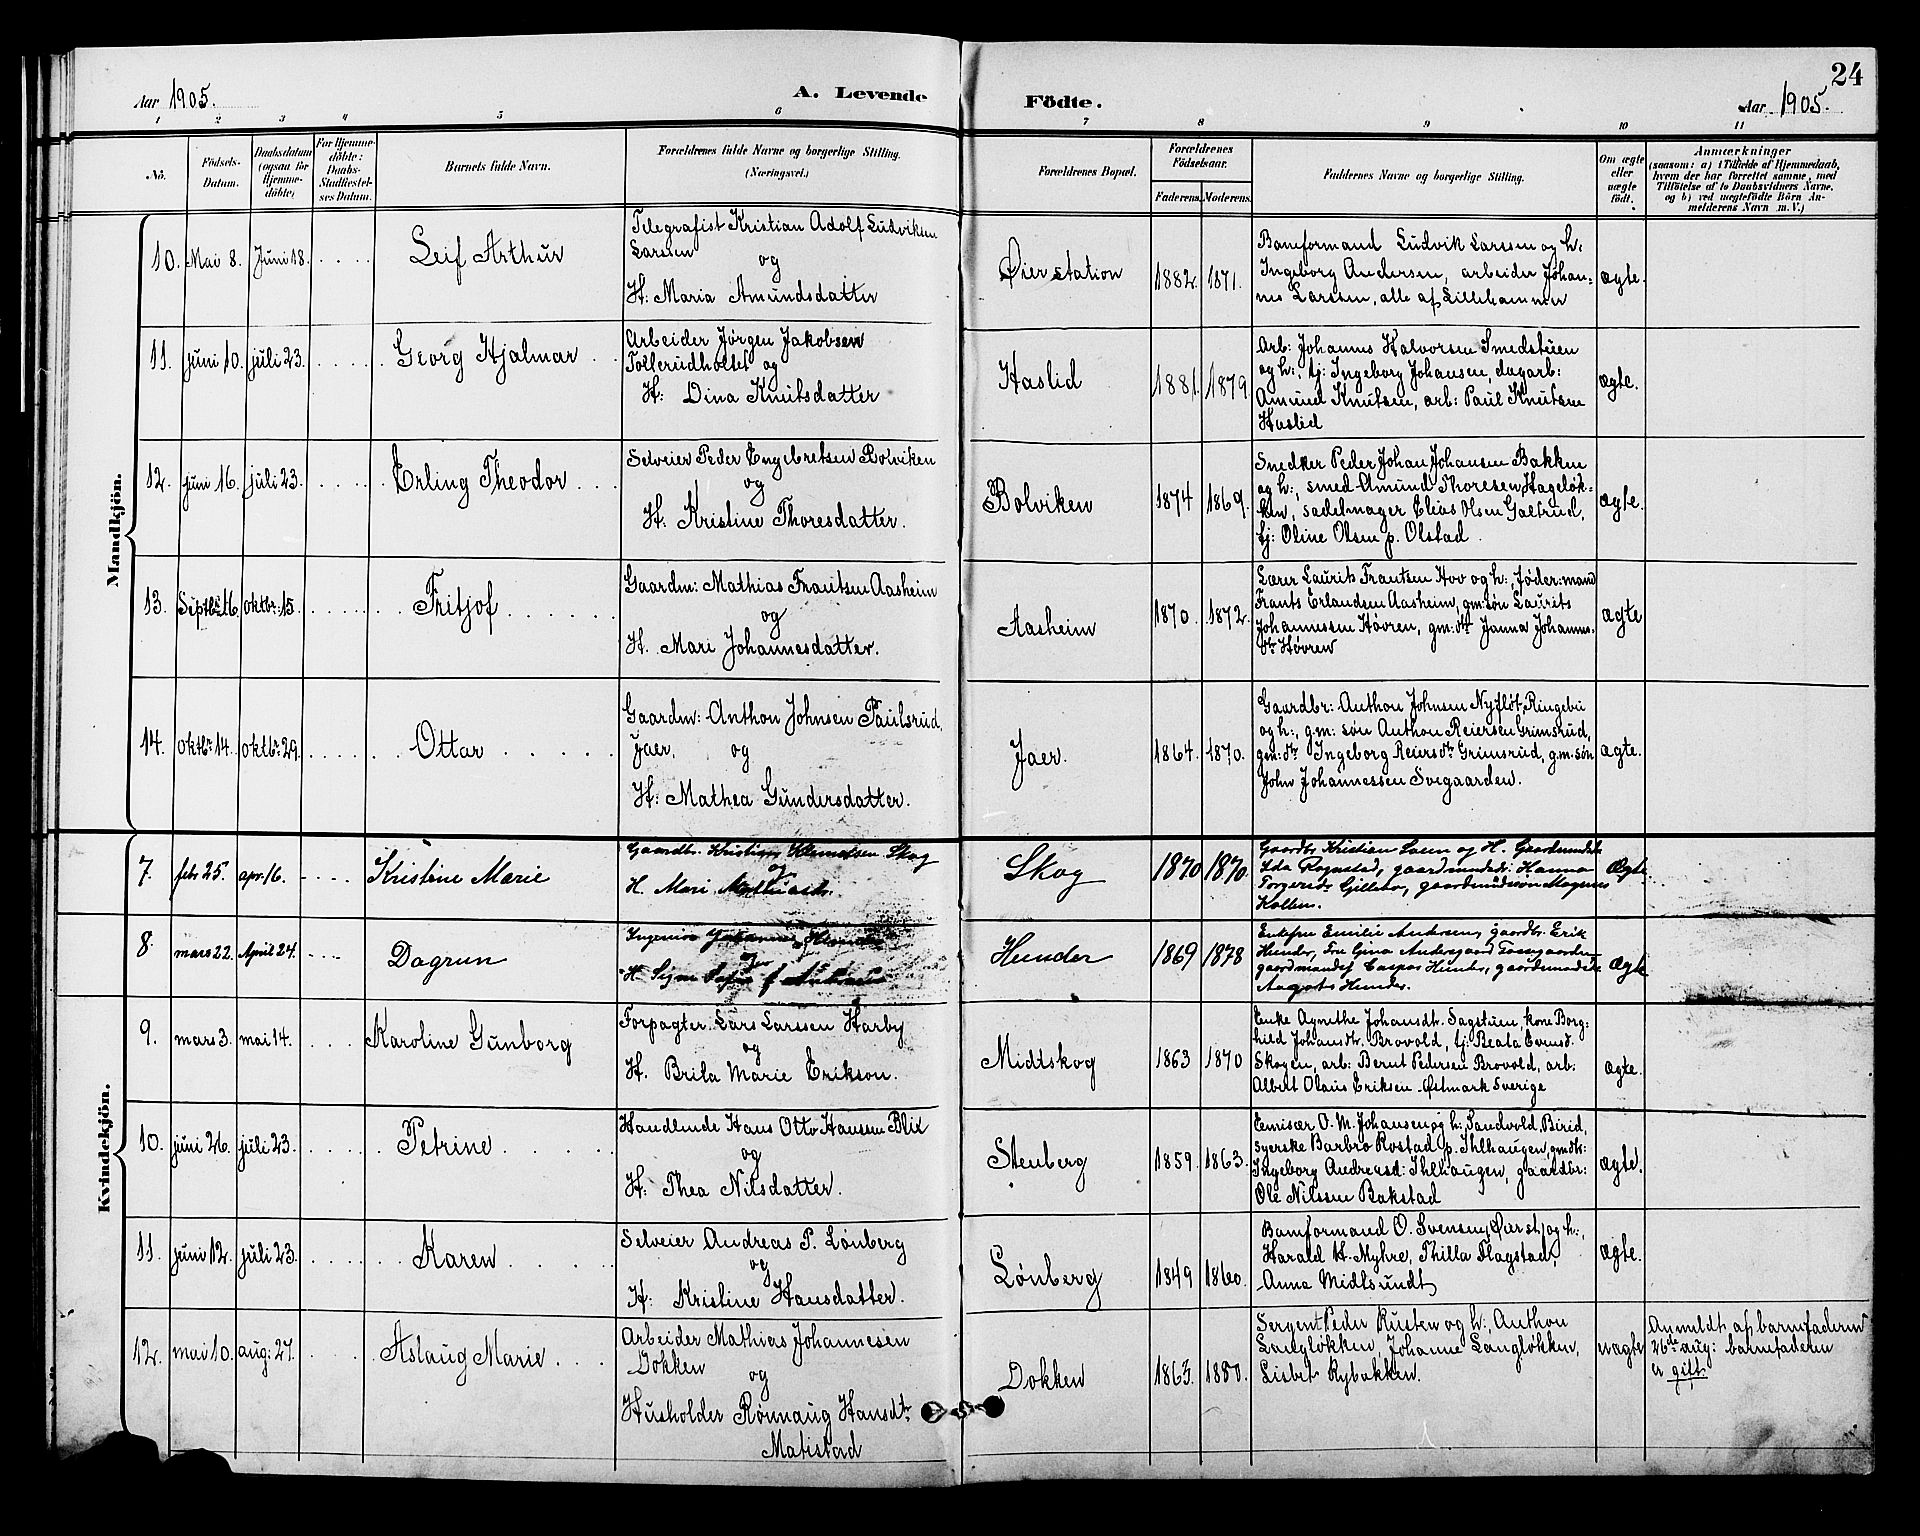 24
Aar 1905.
A. Levende
Födte.
Aar 1905.
1 2 3 4 5 6 7 8 9 10 11
No.
Födsels-
Datum.
Daabsdatum
(ogsaa for
Hjemme-
döbte)
For Hjemme-
döbte:
Daabs-
Stadfæstel-
ses Datum.
Barnets fulde Navn.
Forældrenes fulde Navne og borgerlige Stilling.
(Næringsvei.)
Forældrenes Bopæl.
Forældrenes
Födselsaar.
Faderens.
Moderens.
Faddernes Navne og borgerlige Stilling.
Om ægte
eller
uægte
født.
Anmærkninger
(saasom: a) i Tilfælde af Hjemmedaab,
hvem der har forrettet samme, med
Tilføielse af to Daabsvidners Navne,
og b) ved uægtefödte Börn An-
melderens Navn m. V.)
Mandkjön.
10. Mai 8. Juni 18. Leif Arthur
Telegrafist Kristian Adolf Ludviksen
Larssen
og
H: Maria Amundsdatter
Øier station 1882. 1871.
Baneformand Ludvik Larssen og h:
Ingeborg Andersen, arbeider Johan-
nes Larssen, alle af Lillehammer
ægte.
11. juni 10. juli 23. Georg Hjalmar
Arbeider Jørgen Jakobsen
Tollerudholtet og
H: Dina Knutsdatter
Haslid 1881. 1879.
Arb: Johannes Halvorsen Smedstuen
og h:, tj: Ingeborg Johansen, dagarb:
Amund Knutsen, arb: Paul Knutsen
Haslid
ægte.
12. juni 16. juli 23. Erling Theodor
Selveier Peder Engebretsen Bolviken
og
H: Kristine Thoresdatter.
Bolviken 1874 1869.
Snedker Peder Johan Johansen Bakken
og h:, smed Amund Thoresen Hageløk-
ken, sadelmager Elias Olsen Galtrud,
tj: Oline Olsen p. Olstad.
ægte.
13. Septbr: 16. oktbr: 15. Fritjof
Gaardm: Mathias Frantsen Aasheim
og
H. Mari Johannesdatter.
Aasheim 1870. 1872.
Lærer Laurits Frantsen Hov og h:, føder:mand
Frants Erlandsen Aasheim, gm:søn Laurits
Johannessen Høvren, gm:dtr Janna Johannes-
dtr Høvren
ægte
14. oktbr: 14. oktbr: 29. Ottar
Gaardm: Anthon Johnsen Paulsrud,
Jaer, og
H: Mathea Gundersdatter.
Jaer. 1864. 1870.
Gaardbr: Anthon Johnsen Nyfløt, Ringebu
og h:, g.m: søn Anthon Reiersen Grimsrud,
gm:dtr Ingeborg Reiersdtr Grimsrud, g.m. søn
John Johannessen Svegaarden.
ægte.
Kvindekjön.
7. febr 25. apr. 16. Kristine Marie
Gaardbr. Kristian Skog
og
H. Mari
Skog 1870 1870.
Gaardbr Kristian Loen og H. Gaardmandsd.
Ida Rognstad, gaardmandsd. Hanna
Torgersd. Gillebo, gaardmandssøn Magnus
Kolben.
Ægte.
8 mars 22. April 24. Dagrun
Ingeniør Johannes Hunder
og
H. Signe
Hunder 1869 1878
Enkefru Emilie Andersen, gaardbr. Erik
Hunder, Fru Gina Andersgaard
gaardmands. Caspar Hunder, gaardmandsd.
Aagots Hunder.
Ægte
9. mars 3. mai 14. Karoline Gunborg
Forpagter Lars Larssen Harby
og
H. Brita Marie Erikson.
Midtskog 1863 1870
Enke Agnethe Johansdtr. Sagstuen, kone Borg-
hild Johansdtr. Brovold, tj: Beata Evensd.
Skogen, arb: Bernt Pedersen Brovold, arb:
Albert Olaus Eriksen Østmark Sverige
ægte.
10. juni 26. juli 23. Petrine
Handlende Hans Otto Hanssen Blix
og
H: Thea Nilsdatter.
Stenberg 1859. 1863.
Emisær O. M. Johansen og h:, Sandvold, Birid,
syerske Barbro Rostad p. Ihlhaugen, gmdtr:
Ingeborg Andreasd: Ihlhaugen, gaardbr:
Ole Nilssen Bakstad
ægte.
11. juni 12. juli 23. Karen
Selveier Andreas P. Lønberg
og
H: Kristine Hansdatter.
Lønberg 1849 1860.
Baneformand O. Svensen, Øier st, og h:,
Harald H. Myhre, Thilla Flagstad,
Anna Midtsundt
ægte.
12. mai 10. aug: 27. Aslaug Marie
Arbeider Mathias Johannesen
Dokken
og
Husholder Rønnaug Hansdtr.
Matistad
Dokken 1863. 1880.
Sergent Peder Rusten og h:, Anthon
Langløkken, Johanne Langløkken,
Lisbet Rybakken.
uægte
Anmeldt af barnefaderen
26de aug: barnefaderen
er gift.